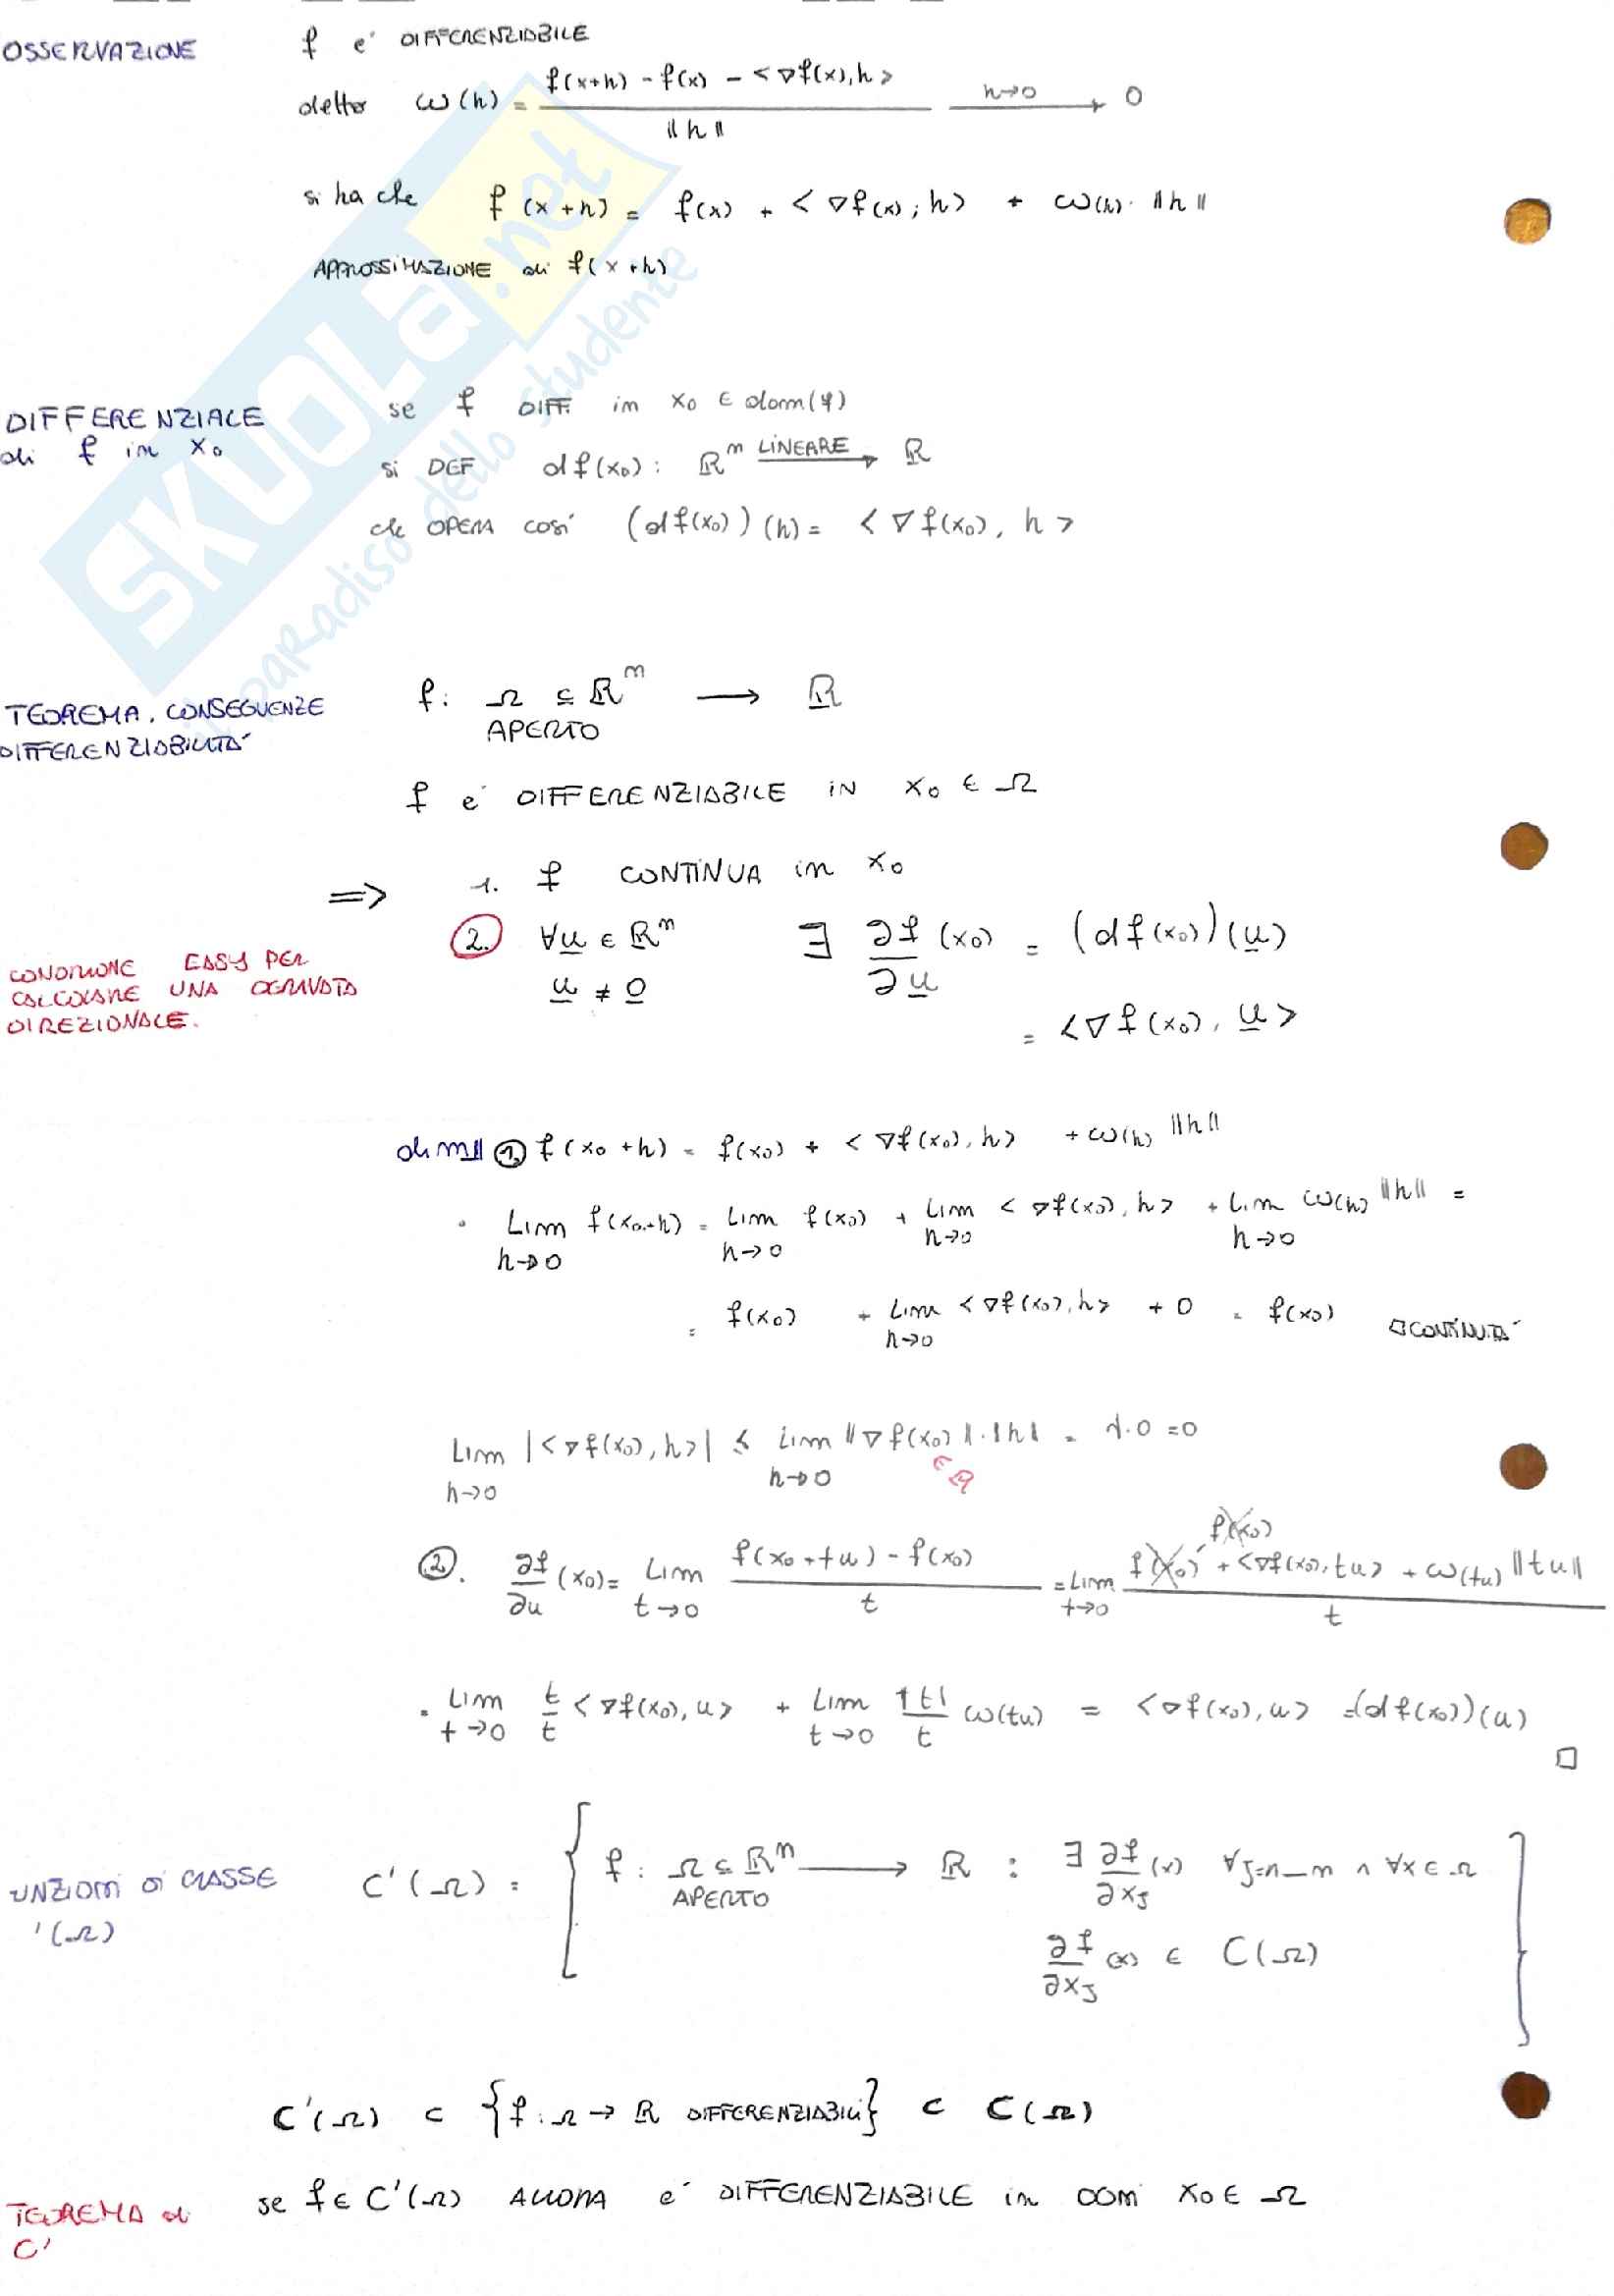 OSSERVAZIONE f e' DIFFERENZIABILE
detto ω(h) = (f(x+h) - f(x) - <∇f(x), h>) / ‖h‖ —h→0→ 0
si ha che f(x+h) = f(x) + <∇f(x); h> + ω(h) · ‖h‖
APPROSSIMAZIONE di f(x+h)
SKUOLA.net
il paradiso dello studente
DIFFERENZIALE di f in x₀
se f DIFF. in x₀ ∈ dom(f)
si DEF df(x₀): ℝⁿ —LINEARE→ ℝ
che OPERA così (df(x₀))(h) = <∇f(x₀), h>
TEOREMA. CONSEGUENZE DIFFERENZIABILITA'
f: Ω ⊆ ℝⁿ → ℝ
APERTO
f e' DIFFERENZIABILE IN x₀ ∈ Ω
⇒ 1. f CONTINUA in x₀
2. ∀u ∈ ℝⁿ ∃ ∂f/∂u (x₀) = (df(x₀))(u)
u ≠ 0
= <∇f(x₀), u>
CONDIZIONE EASY PER
CALCOLARE UNA DERIVATA
DIREZIONALE.
dim ① f(x₀+h) = f(x₀) + <∇f(x₀), h> + ω(h) ‖h‖
· Lim h→0 f(x₀+h) = Lim h→0 f(x₀) + Lim h→0 <∇f(x₀), h> + Lim h→0 ω(h) ‖h‖ =
= f(x₀) + Lim h→0 <∇f(x₀), h> + 0 = f(x₀) □CONTINUITA'
Lim h→0 |<∇f(x₀), h>| ≤ Lim h→0 ‖∇f(x₀)‖·‖h‖ = λ·0 = 0
∈ ℝ
②. ∂f/∂u (x₀) = Lim t→0 (f(x₀+tu) - f(x₀)) / t = Lim t→0 (f(x₀) - f(x₀) + <∇f(x₀), tu> + ω(tu) ‖tu‖) / t
= Lim t→0 t/t <∇f(x₀), u> + Lim t→0 |t|/t ω(tu) = <∇f(x₀), u> = (df(x₀))(u)
□
UNZIONI DI CLASSE
'(Ω)
C'(Ω) = { f: Ω ⊆ ℝⁿ → ℝ : ∃ ∂f/∂xⱼ (x) ∀j=1_n ∧ ∀x ∈ Ω
APERTO
∂f/∂xⱼ (x) ∈ C(Ω) }
C'(Ω) ⊂ {f: Ω → ℝ DIFFERENZIABILI} ⊂ C(Ω)
TEOREMA di C'
se f ∈ C'(Ω) ALLORA e' DIFFERENZIABILE in OGNI x₀ ∈ Ω